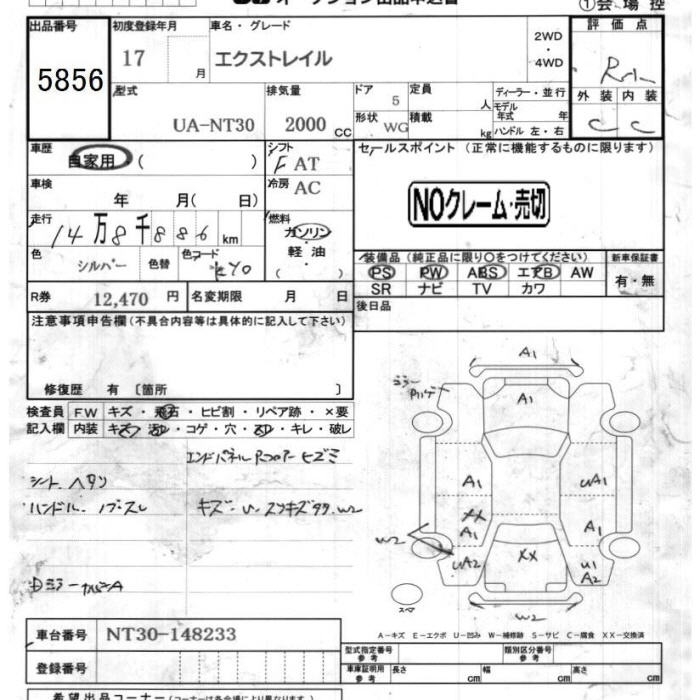 ①会場控
出品番号 初度登録年月 車名・グレード 2WD・4WD 評価点
5856 17 月 エクストレイル R
外装 内装
型式 排気量 ドア 定員 ディーラー・並行
UA-NT30 2000 CC 5 人 モデル年式 年
形状 積載 C C
WG kg ハンドル 左・右
車歴 シフト セールスポイント (正常に機能するものに限ります)
自家用 ( ) F AT
車検 冷房 NOクレーム・売切
年 月( 日) AC
走行 燃料
14万8千886 km ガソリン
軽油
( )
色 色替 色コード 装備品 (純正品に限り○をつけてください) 新車保証書
シルバー KY0 PS PW ABS エアB AW 有・無
SR ナビ TV カワ
R券 12,470 円 名変期限 月 日 後日品
注意事項申告欄 (不具合内容等は具体的に記入して下さい)
修復歴 有 〔箇所 〕
検査員 FW キズ・飛石・ヒビ割・リペア跡・×要
記入欄 内装 キズ・汚レ・コゲ・穴・スレ・キレ・破レ
エンドパネル Rフロアー ヒズミ
シート ヘタリ
ハンドル
A1
A1
A1 UA1
XX
A1 A1
W2 UA2 XX U1
A2
スペア
W2
A－キズ E－エクボ U－凹み W－補修跡 S－サビ C－腐食 XX－交換済
車台番号 NT30-148233
型式指定番号 参考 類別区分番号 参考
登録番号 車庫証明用 参考 長さ cm 幅 cm 高さ cm
希望出品コーナー (コーナーは各会場により異なります)